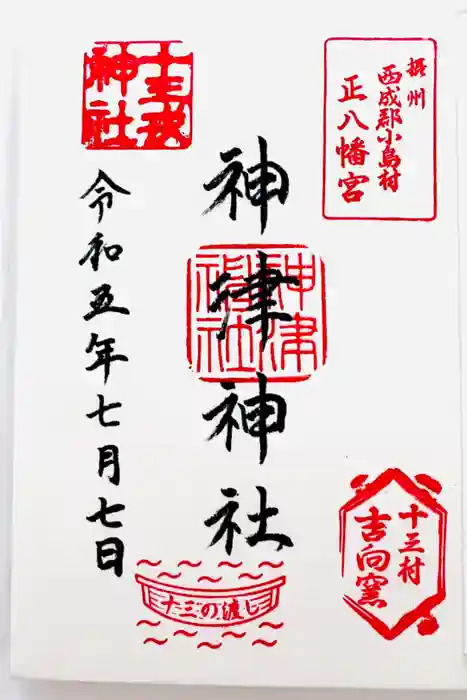 摂州
西成郡小島村
正八幡宮
十三村
吉向窯
神津神社
神津
神社
十三の渡し
十三戎
神社
令和五年七月七日